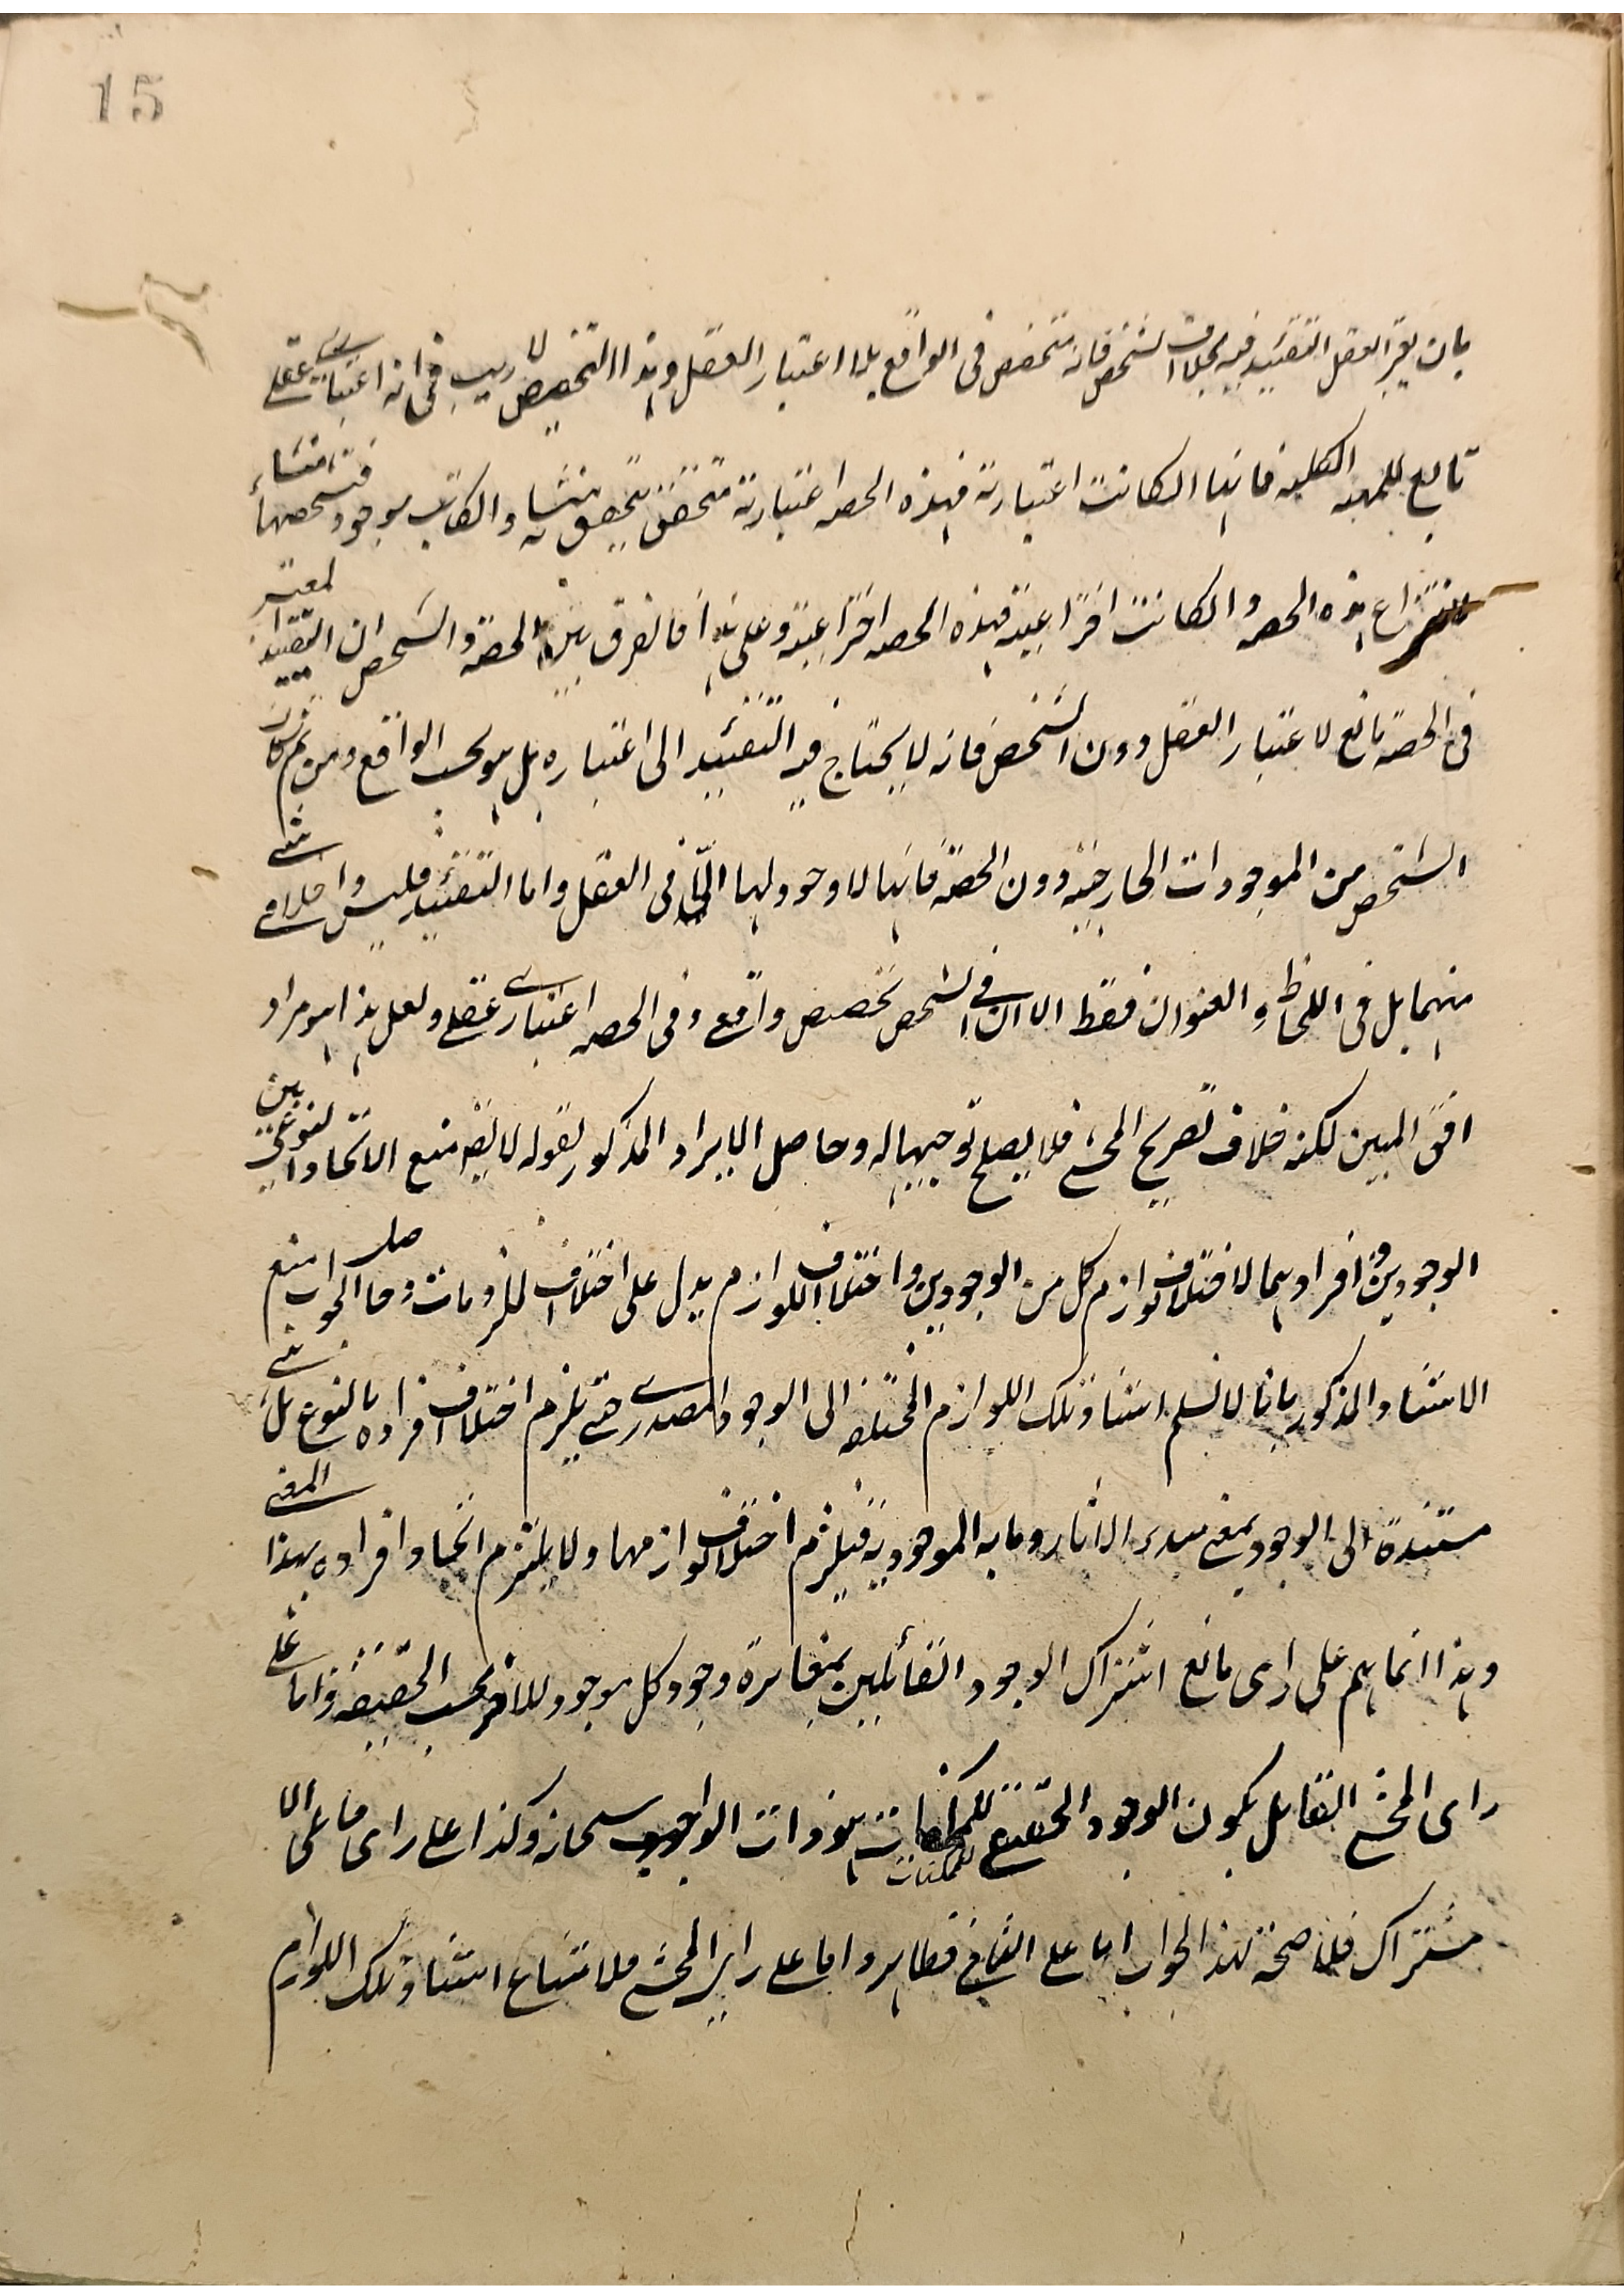 15
بان يعتبر العقل التقييد فيه بخلاف الشخص فانه متخصص فى الواقع بلا اعتبار العقل وهذا التخصيص لا ريب فى انه اعتبارى عقلى
تابع للمهية الكلية فانها ان كانت اعتبارية فهذه الحصة اعتبارية متحقق بتحقق منشاءه والكاتب موجود فتحصصها منشاء
انتزاع هذه الحصه وان كانت اختراعية فهذه الحصه اختراعية وعلى هذا فالفرق بين الحصة والشخص ان التقييد المعتبر
فى الحصة تابع لاعتبار العقل دون الشخص فانه لا يحتاج فيه التقييد الى اعتباره بل هو بحسب الواقع ومن ثم كان
الشخص من الموجودات الخارجية دون الحصة فانها لا وجود لها الا فى العقل واما التقييد فليس داخلا فى شئ
منهما بل فى اللحاظ والعنوان فقط الا ان فى الشخص تخصيص واقعى وفى الحصه اعتبارى عقلى ولعل هذا هو مراد
افق المبين لكنه خلاف تصريح المحشى فلا يصلح توجيها له وحاصل الايراد المذكور بقوله لا يقال منع الاتحاد النوعى بين
الوجودين وافرادهما لاختلاف لوازم كل من الوجودين واختلاف اللوازم يدل على اختلاف الملزومات وحاصل الجواب منع
الاستناد المذكور بانا لا نسلم استناد تلك اللوازم المختلفة الى الوجود المصدرى حتى يلزم اختلاف افراده بالنوع بل هى
مستندة الى الوجود بمعنى مبدء الاثار وما به الموجودية فيلزم اختلاف لوازمها ولا يلتزم اتحاد افراده بهذا المعنى
وهذا انما يتم على راى مانع اشتراك الوجود القائلين بمغايرة وجود كل موجود للاخر بحسب الحقيقة واما على
راى المحشى القائل بكون الوجود الحقيقى للممكنات هو ذات الواجب سبحانه وكذا على راى مانعى الا
للممكنات
شتراك فلا صحة لهذا الجواب اما على الثانى فظاهر واما على راى المحشى فلامتناع استناد تلك اللوازم